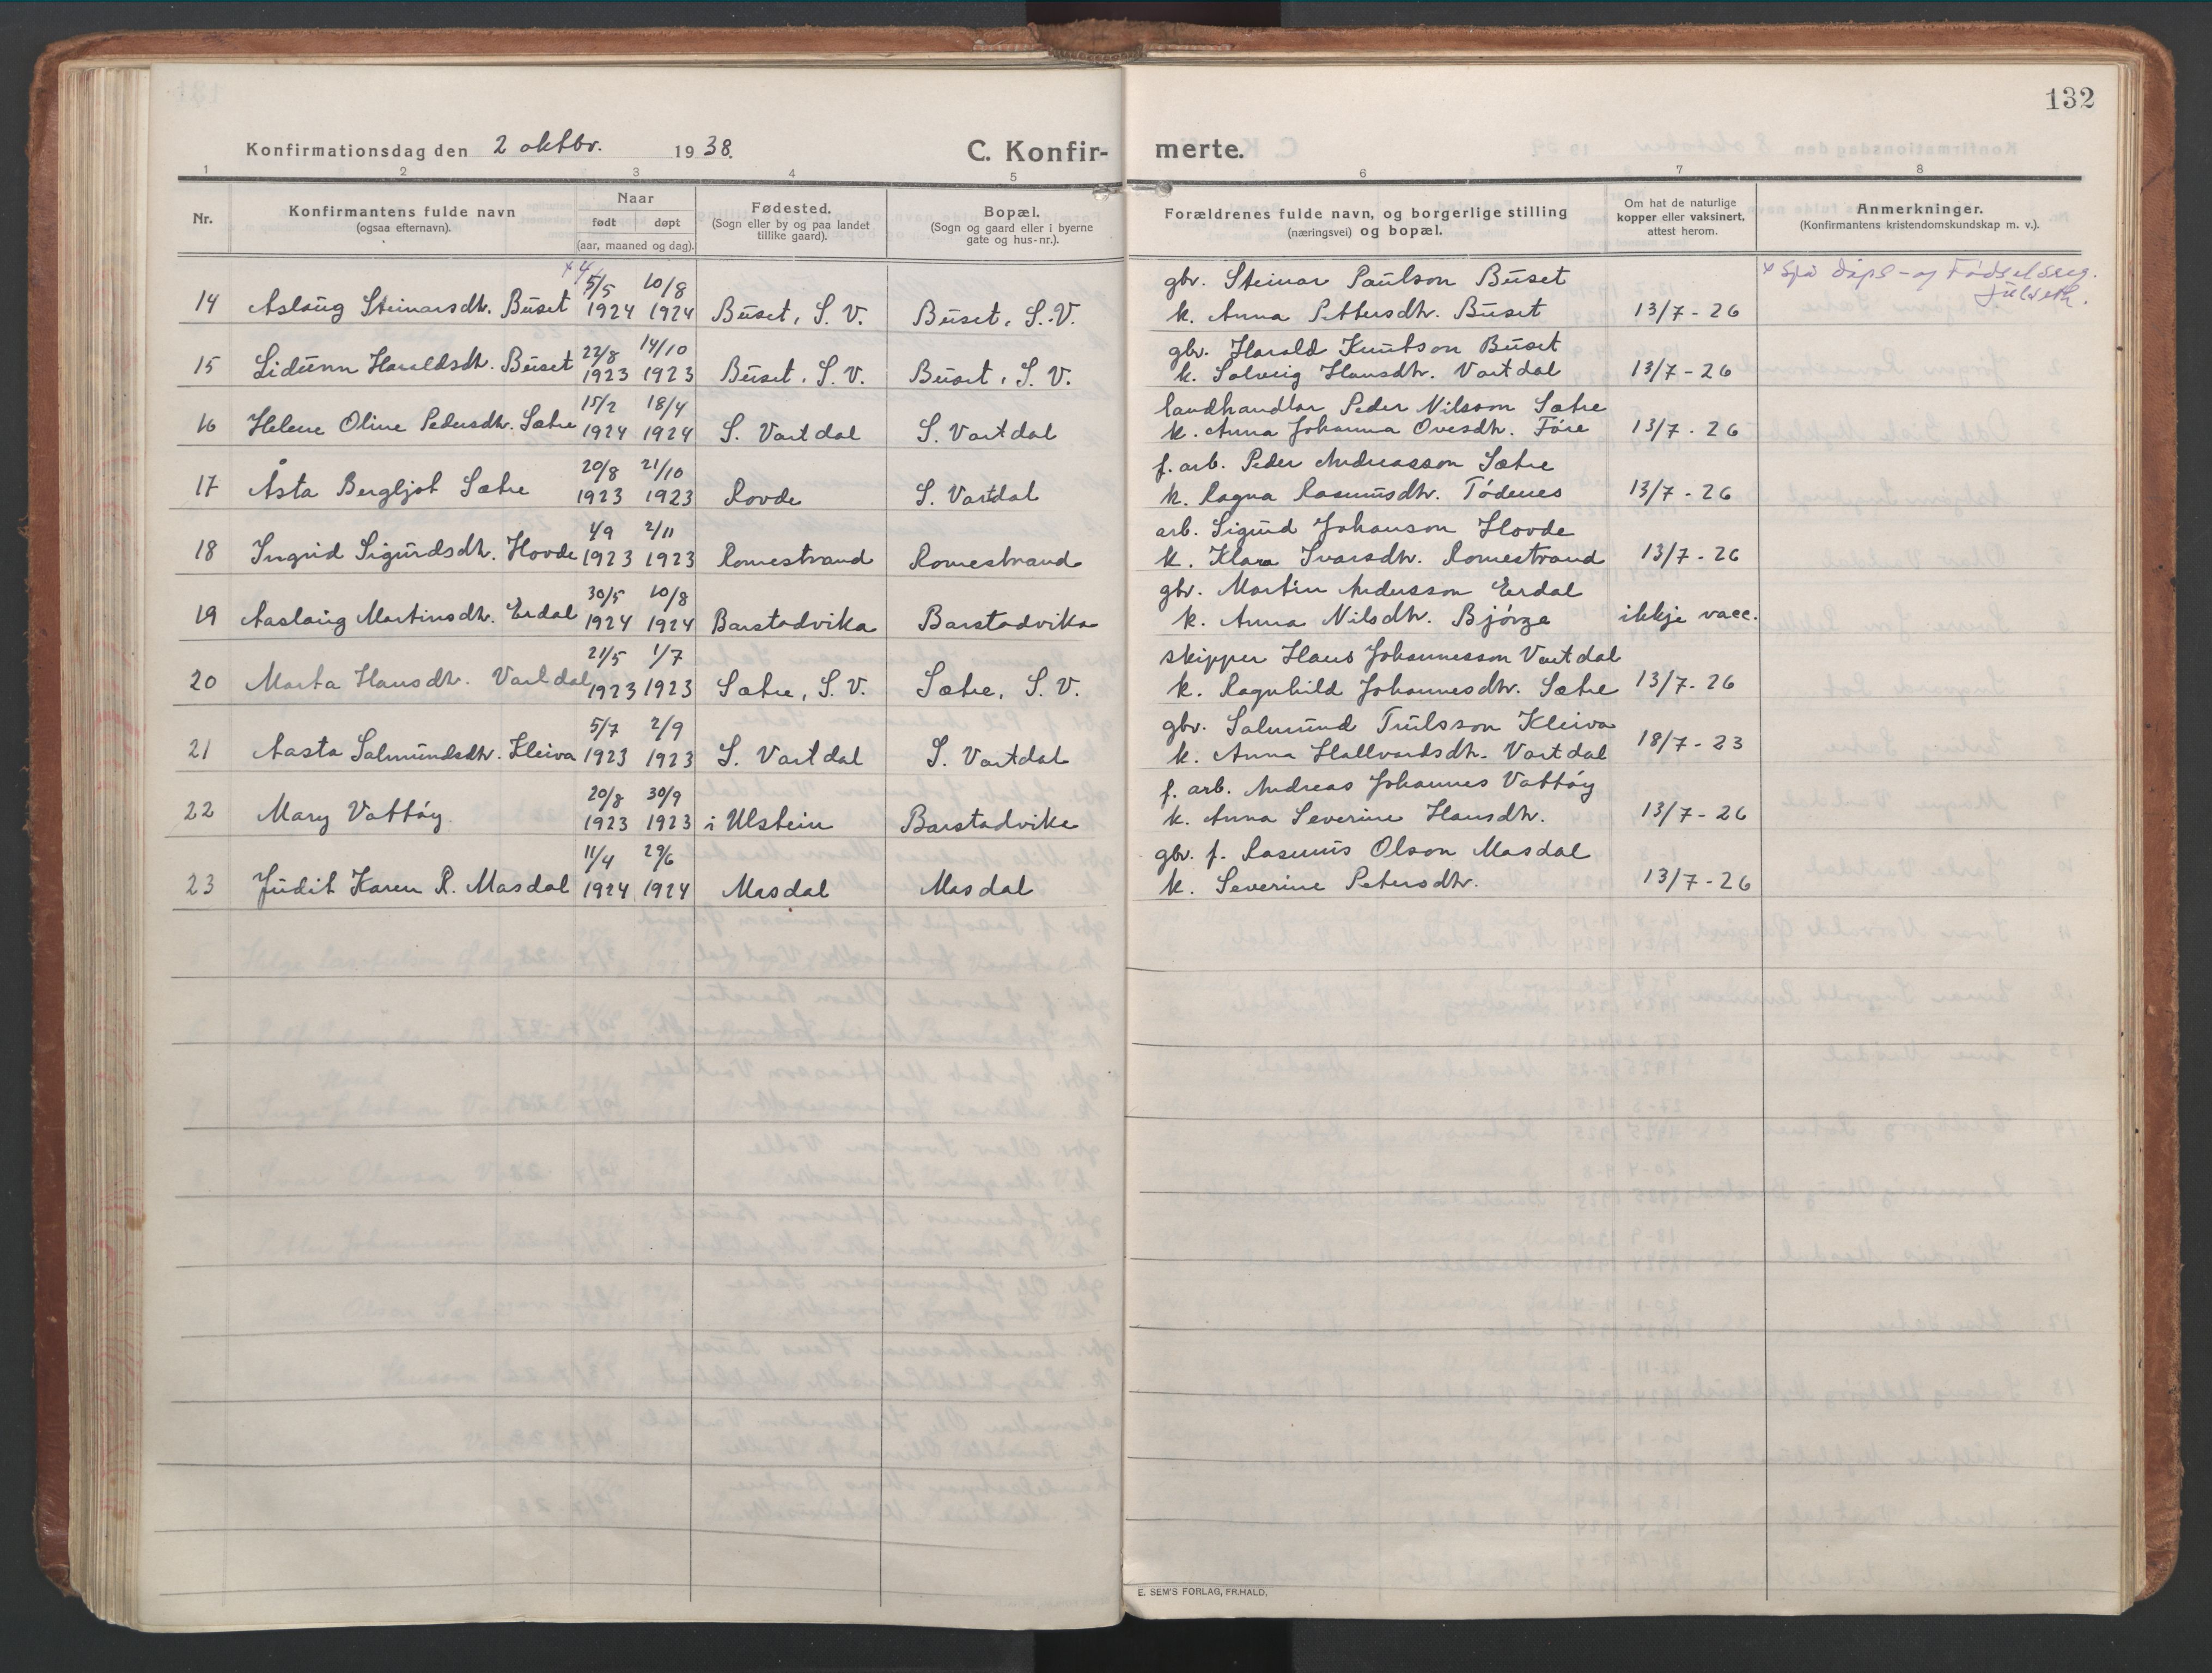 132
Konfirmationsdag den 2 oktbr. 1938. C. Konfir- merte.
1 2 3 4 5 6 7 8
Nr.
Konfirmantens fulde navn
(ogsaa efternavn).
Naar
født døpt
(aar, maaned og dag).
Fødested.
(Sogn eller by og paa landet
tillike gaard).
Bopæl.
(Sogn og gaard eller i byerne
gate og hus-nr.).
Forældrenes fulde navn, og borgerlige stilling
(næringsvei) og bopæl.
Om hat de naturlige
kopper eller vaksinert,
attest herom.
Anmerkninger.
(Konfirmantens kristendomskundskap m. v.).
x 4/ 5/5 10/8 gbr. Steinar Paulson Buset x Sjå dåps- og Fødselsreg.
14 Aslaug Steinarsdtr. Buset 1924 1924 Buset, S. V. Buset, S. V. k. Anna Pettersdtr. Buset 13/7 - 26
22/8 14/10 gbr. Harald Knutson Buset
15 Lidunn Haraldsdtr. Buset 1923 1923 Buset, S. V. Buset, S. V. k. Solveig Hansdtr. Vartdal 13/7 - 26
15/2 18/4 landhandlar Peder Nilsson Sætre
16 Helene Oline Pedersdtr. Sætre 1924 1924 S. Vartdal S. Vartdal k. Anna Johanna Ovesdtr. Føre 13/7 - 26
20/8 21/10 f. arb. Peder Andreasson Sætre
17 Åsta Bergljot Sætre 1923 1923 Rovde S. Vartdal k. Ragna Rasmusdtr. Tødenes 13/7 - 26
4/9 2/11 arb. Sigurd Johanson Hovde
18 Ingrid Sigurdsdtr. Hovde 1923 1923 Romestrand Romestrand k. Klara Ivarsdtr. Romestrand 13/7 - 26
30/5 10/8 gbr. Martin Andersson Erdal
19 Aaslaug Martinsdtr. Erdal 1924 1924 Barstadvika Barstadvika k. Anna Nilsdtr. Bjørge ikkje vacc.
21/5 1/7 skipper Hans Johannesson Vartdal
20 Marta Hansdtr. Vartdal 1923 1923 Sætre, S. V. Sætre, S. V. k. Ragnhild Johannesdtr. Sætre 13/7 - 26
5/7 2/9 gbr. Salmund Trulsson Kleiva
21 Aasta Salmundsdtr. Kleiva 1923 1923 S. Vartdal S. Vartdal k. Anna Hallvardsdtr. Vartdal 18/7 - 23
20/8 30/9 f. arb. Andreas Johannes Vattøy
22 Mary Vattøy. 1923 1923 i Ulstein Barstadvike k. Anna Severine Hansdtr. 13/7 - 26
11/4 29/6 gbr. f. Rasmus Olson Masdal
23 Judit Karen R. Masdal 1924 1924 Masdal Masdal k. Severine Petersdtr. 13/7 - 26
E. SEM'S FORLAG, FR.HALD.